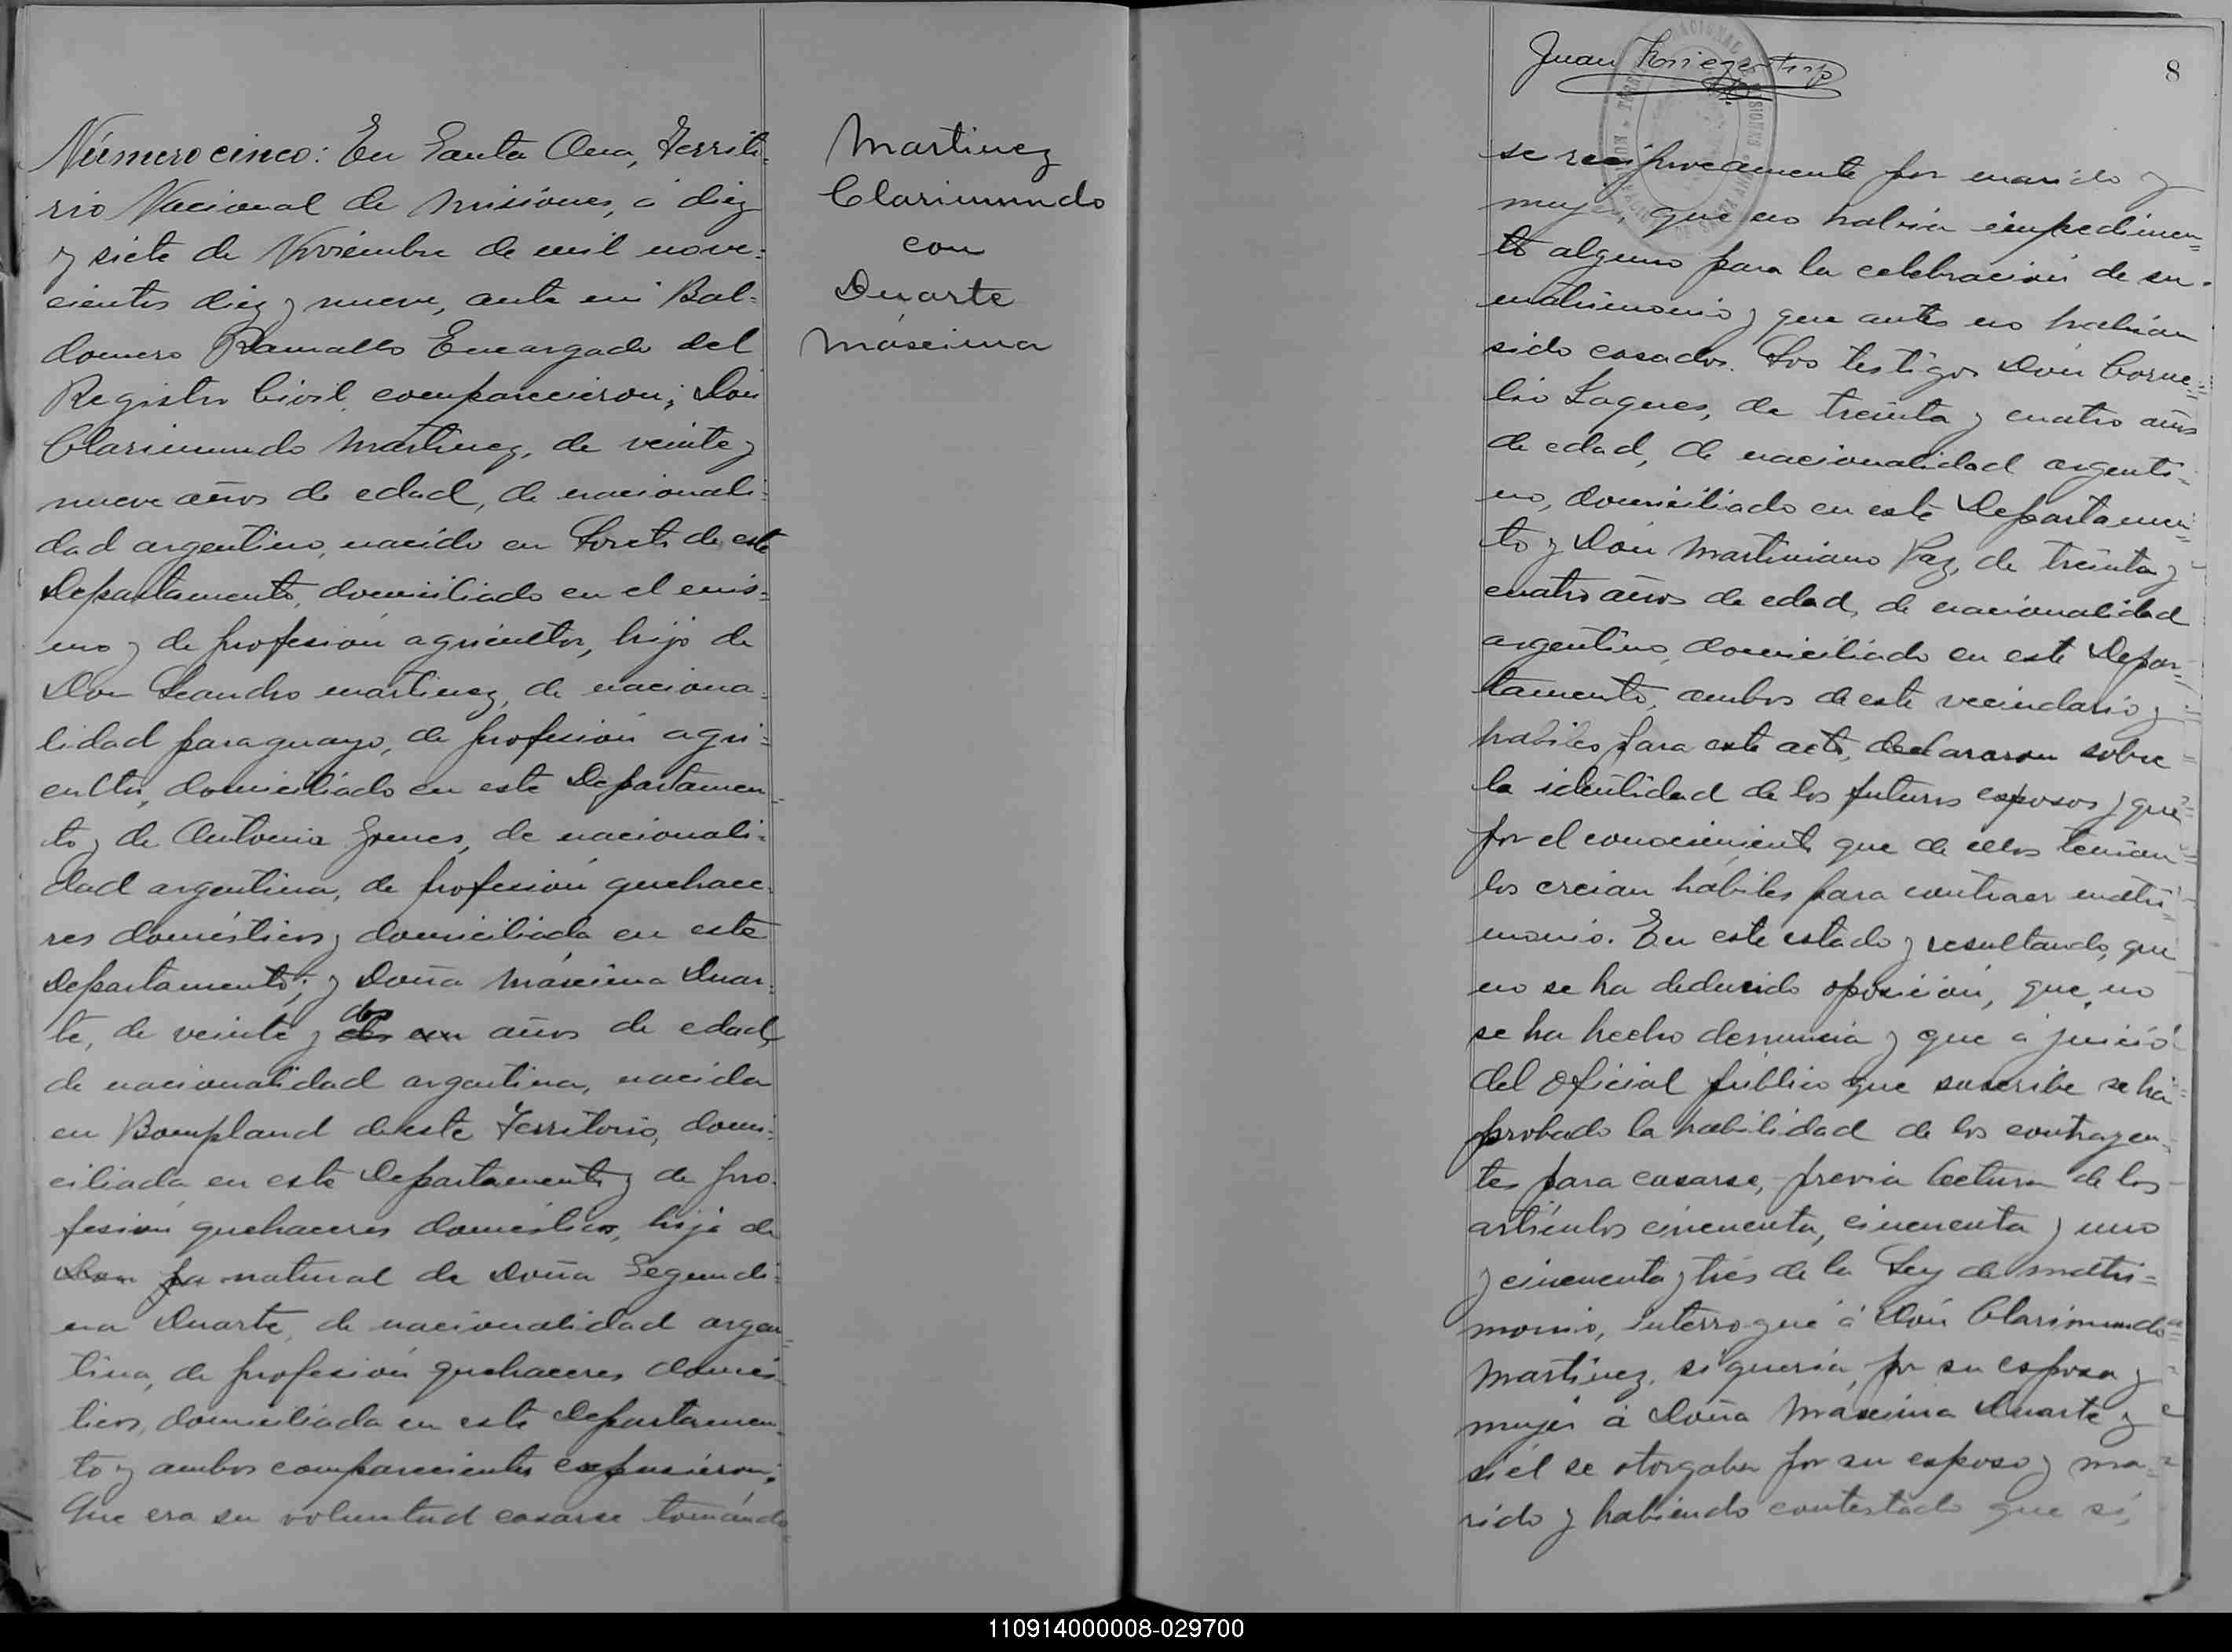 Número cinco: En Santa Ana, Territo-
rio Nacional de Misiones, á diez
y siete de Noviembre de mil nove-
cientos diez y nueve, ante mi Bal-
domero Ramallo Encargado del
Registro Civil comparecieron; Don
Clarimundo Martinez, de veinte y
nueve años de edad, de nacionali-
dad argentino, nacido en Loreto de este
Departamento, domiciliado en el mis-
mo y de profesión agricultor, hijo de
Don Leandro Martinez, de naciona-
lidad paraguayo, de profesión agri-
cultor, domiciliado en este Departamen-
to y de Antonia, de nacionali-
dad argentina, de profesión quehace-
res domésticos y domiciliada en este
Departamento; y Doña Máxima Duar-
te, de veinte y dos años de edad,
de nacionalidad argentina, nacida
en Bompland de este Territorio, domi-
ciliada en este Departamento y de pro-
fesión quehaceres domésticos, hija de
natural de Doña Segundi-
na Duarte, de nacionalidad argen-
tina, de profesión quehaceres domés-
ticos, domiciliada en este Departamen-
to y ambos comparecientes expusieron:
Que era su voluntad casarse tomándo
Martinez
Clarimundo
con
Duarte
Máxima
Juan
8
se reciprocamente por marido y
mujer, que no habia impedimen-
to alguno para la celebración de su
matrimonio y que antes no habian
sido casados. Los testigos Don Corne-
lio Laques, de treinta y cuatro años
de edad, de nacionalidad argenti-
no, domiciliado en este Departamen-
to y Don Martiniano Paz, de treinta y
cuatro años de edad, de nacionalidad
argentino, domiciliado en este Depar-
tamento, ambos de este vecindario y
habiles para este acto, declararon sobre
la identidad de los futuros esposos y que
por el conocimiento que de ellos tenian
los creian hábiles para contraer matri-
monio. En este estado y resultando, que
no se ha deducido oposición, que no
se ha hecho denuncia y que á juicio
del Oficial público que suscribe se há
probado la habilidad de los contrayen-
tes para casarse, previa lectura de los
artículos cincuenta, cincuenta y uno
y cincuenta y tres de la Ley de matri-
monio, interrogué á Don Clarimundo
Martinez, si queria, por su esposa y
mujer á Doña Maxima Duarte y
si él se otorgaba por su esposo y ma-
rido y habiendo contestado que sí,
110914000008-029700